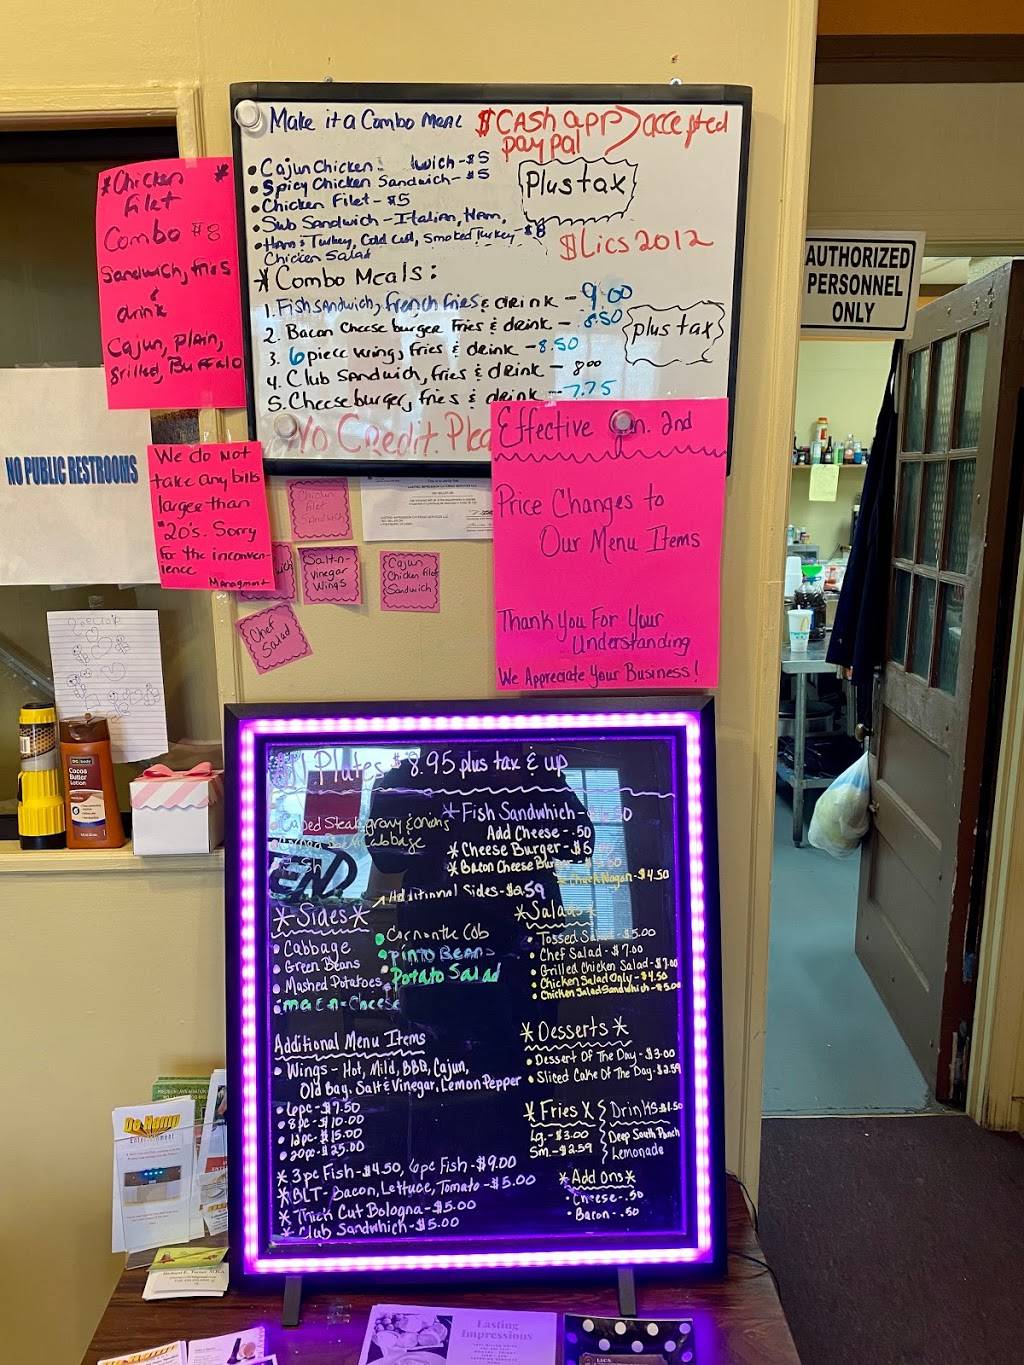 Make it a Combo Meal
$CASH app
paypal
accepted
• Cajun Chicken wich-$5
• Spicy Chicken Sandwich-$5
• Chicken Filet-$5
• Sub Sandwich-Italian, Ham,
• Ham & Turkey, Cold Cut, Smoked Turkey-$8
Chicken Salad
Plus tax
$Lics2012
* Combo Meals:
1. Fish sandwich, french fries & drink - 9.00
2. Bacon Cheese burger Fries & drink - 8.50
3. 6 piece wings, fries & drink - 8.50
4. Club Sandwich, fries & drink - 8.00
5. Cheese burger, fries & drink - 7.75
plus tax
No Credit. Plea
* Chicken *
Filet
Combo $8
Sandwich, fries
&
drink
Cajun, Plain,
Grilled, Buffalo
AUTHORIZED
PERSONNEL
ONLY
NO PUBLIC RESTROOMS
We do Not
take any bills
larger than
$20's. Sorry
for the inconven-
ience
Managment
Chicken
Filet
Sandwich
Salt-n-
Vinegar
Wings
Cajun
Chicken filet
Sandwich
Chef
Salad
Effective n. 2nd
Price Changes to
Our Menu Items
Thank You For Your
Understanding
We Appreciate Your Business!
Cocoa
Butter
Lotion
Plates $8.95 plus tax & up
Cubed Steak gravy & onions
Cabbage
* Fish Sandwhich-
Add Cheese-.50
* Cheese Burger-$6
* Bacon Cheese Burger
Chuck Wagon-$4.50
Additional Sides-$2.59
* Sides *
• Cabbage
• Green Beans
• Mashed Potatoes
• mac-n-Cheese
• Corn on the Cob
• pinto Beans
• Potato Salad
* Salads *
• Tossed Sa -$5.00
• Chef Salad-$7.00
• Grilled Chicken Salad-$7.00
• Chicken Salad Only-$4.50
• Chicken Salad Sandwhich-$5.00
Additional Menu Items
• Wings - Hot, Mild, BBQ, Cajun,
Old Bay, Salt & Vinegar, Lemon Pepper
• 6pc-$7.50
• 8pc-$10.00
• 12pc-$15.00
• 20pc-$25.00
* 3pc Fish-$4.50, 6pc Fish-$9.00
* BLT-Bacon, Lettuce, Tomato-$5.00
* Thick Cut Bologna-$5.00
* Club Sandwhich-$5.00
* Desserts *
• Dessert Of The Day-$3.00
• Sliced Cake Of The Day-$2.59
* Fries *
Lg.-$3.00
Sm.-$2.59
Drinks-$1.50
Deep South Punch
Lemonade
* Add Ons *
• Cheese-.50
• Bacon-.50
De Hamp
Entertainment
Lasting
Impressions
LICS